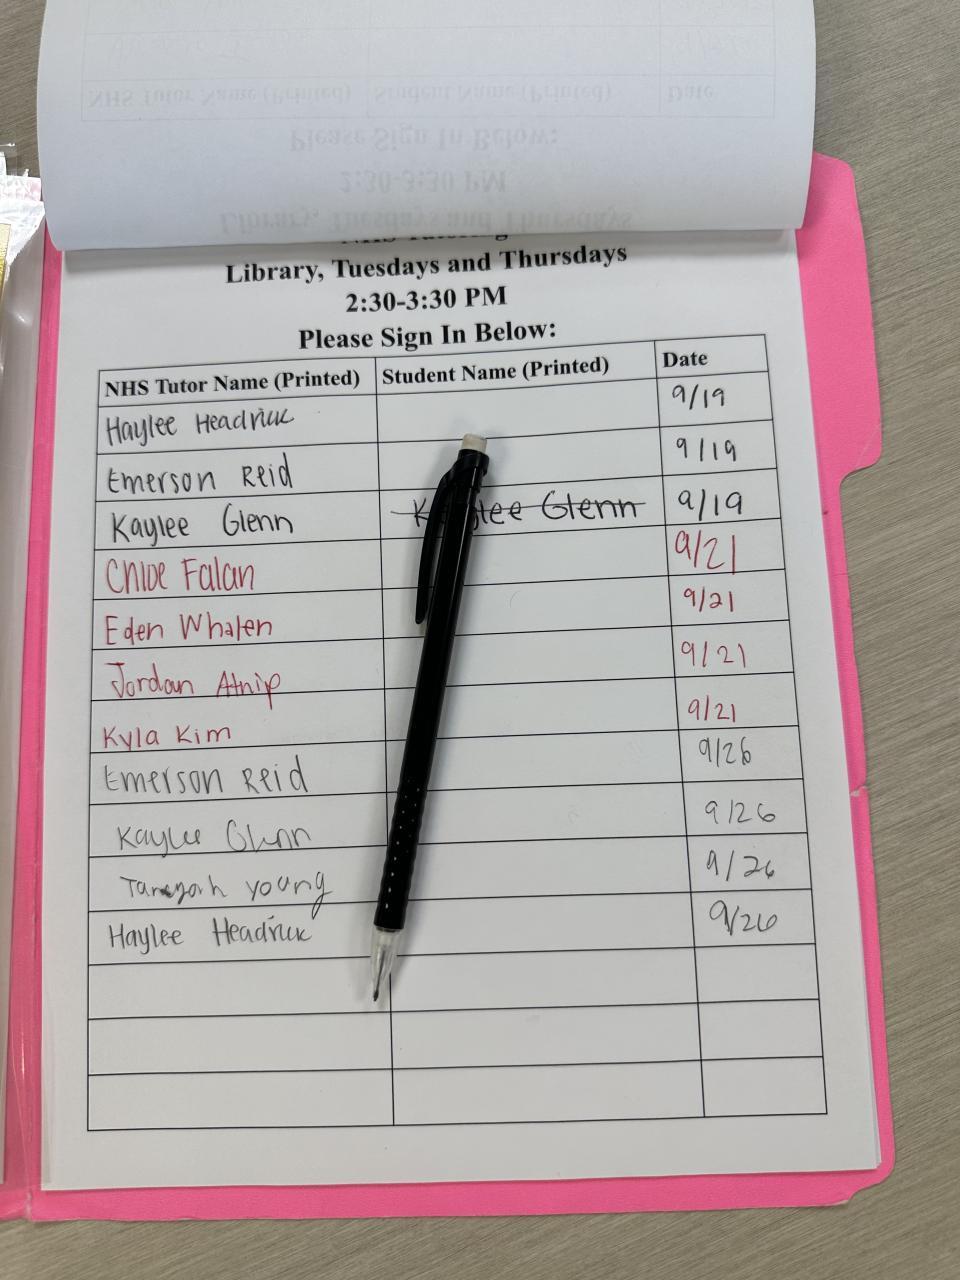 NHS Tutor Name (Printed) Student Name (Printed) Date
Please Sign In Below:
2:30-3:30 PM
Library, Tuesdays and Thursdays
NHS Tutoring
Library, Tuesdays and Thursdays
2:30-3:30 PM
Please Sign In Below:
NHS Tutor Name (Printed) Student Name (Printed) Date
Haylee Headrick 9/19
Emerson Reid 9/19
Kaylee Glenn Kaylee Glenn 9/19
Chloe Falan 9/21
Eden Whalen 9/21
Jordan Atnip 9/21
Kyla Kim 9/21
Emerson Reid 9/26
Kaylee Glenn 9/26
young 9/26
Haylee Headrick 9/26